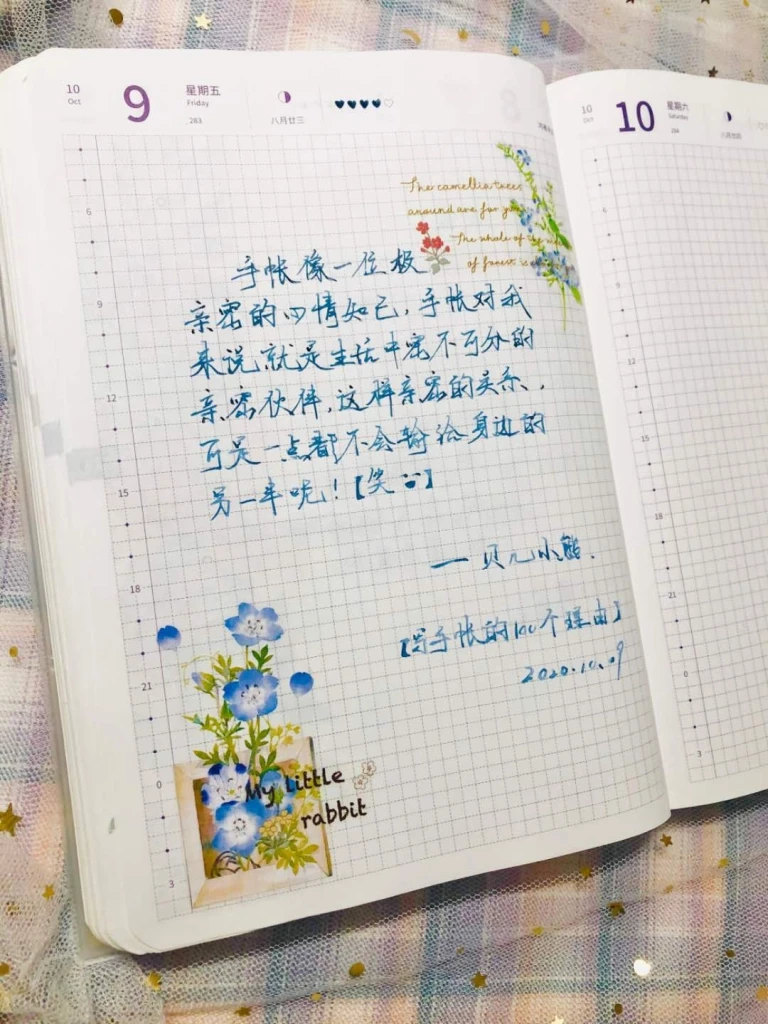 10
Oct
9
星期五
Friday
283
八月廿三
The camellia trees
around are for you
The whole of the
of forest is
手帐像一位极
亲密的心情知己,手帐对我
来说就是生活中密不可分的
亲密伙伴,这样亲密的关系,
可是一点都不会输给身边的
另一半呢!【笑】
——贝儿小熊.
【写手帐的100个理由】
2020.10.09
My little
rabbit
6
9
12
15
18
21
0
3
10
Oct
10
星期六
Saturday
284
12
15
18
21
0
3